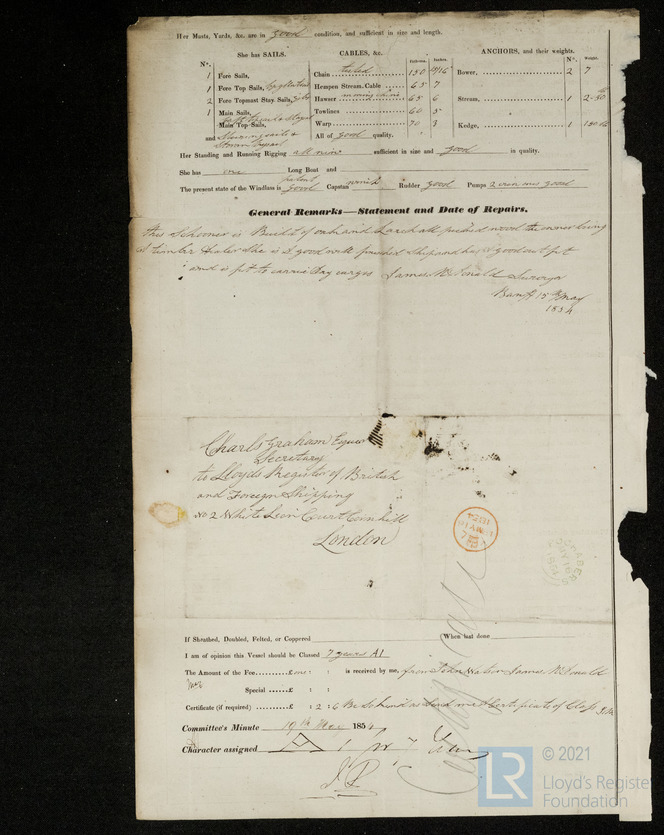 Her Masts, Yards, &c. are in good condition, and sufficient in size and length.
She has SAILS.
N°.
1 Fore Sails,
1 Fore Top Sails,
2 Fore Topmast Stay Sails,
1 Main Sails,
Main Top Sails,
and
CABLES, &c.
Chain 150
Hempen Stream Cable 65 7
Hawser 65 6
Towlines 60 5
Warp 70 3
All of good quality.
ANCHORS, and their weights.
N°. Weight.
Bower, 2 7
Stream, 1
Kedge, 1
Her Standing and Running Rigging all new sufficient in size and good in quality.
She has one Long Boat and
The present state of the Windlass is patent good Capstan Rudder good Pumps good
General Remarks—Statement and Date of Repairs.
This Schooner is Built of oak and Larch all picked wood the owner being
a timber dealer She is a good well finished Ship and has a good out fit
and is fit to carrie dry cargos James McDonald Surveyor
Banff 15th May
1854
Charls Graham Esquire
Secretary
to Lloyds Register of British
and Foreign Shipping
No 2 White Lion Court Cornhill
London
If Sheathed, Doubled, Felted, or Coppered (When last done
I am of opinion this Vessel should be Classed 7 years A1
The Amount of the Fee £ : : is received by me, from John Watson James McDonald
Special £ : :
Certificate (if required) £ : 2 : 6 Be so kind as send me a Certificate of Class
Committee's Minute 19th May 1854
Character assigned
J.P.
LR
© 2021
Lloyd's Register
Foundation